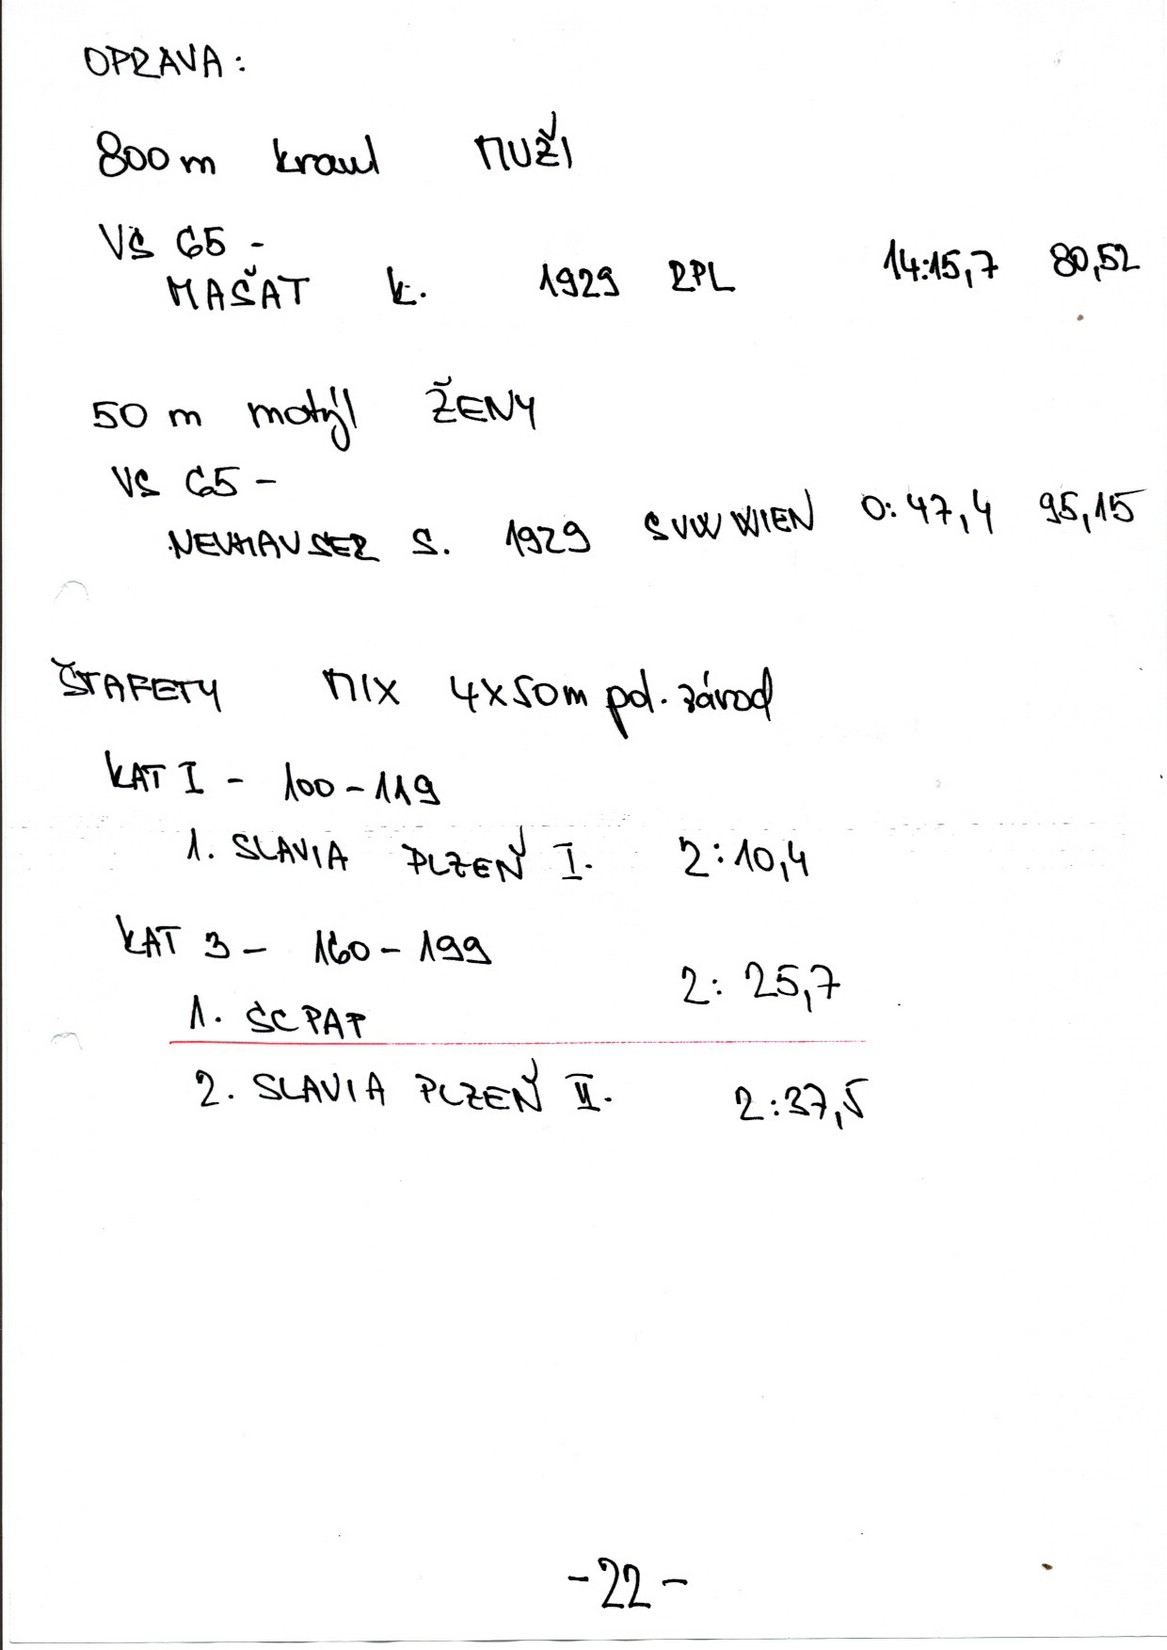 OPRAVA:
800 m kraul MUŽI
VS 65 -
MAŠAT K. 1929 RPL 14:15,7 80,52
50 m motýl ŽENY
VS 65 -
NEUHAUSER S. 1929 SVW WIEN 0:47,4 95,15
ŠTAFETY MIX 4x50m pol. závod
KAT I - 100-119
1. SLAVIA PLZEŇ I. 2:10,4
KAT 3 - 160-199
1. SCPAP 2:25,7
2. SLAVIA PLZEŇ II. 2:37,5
-22-